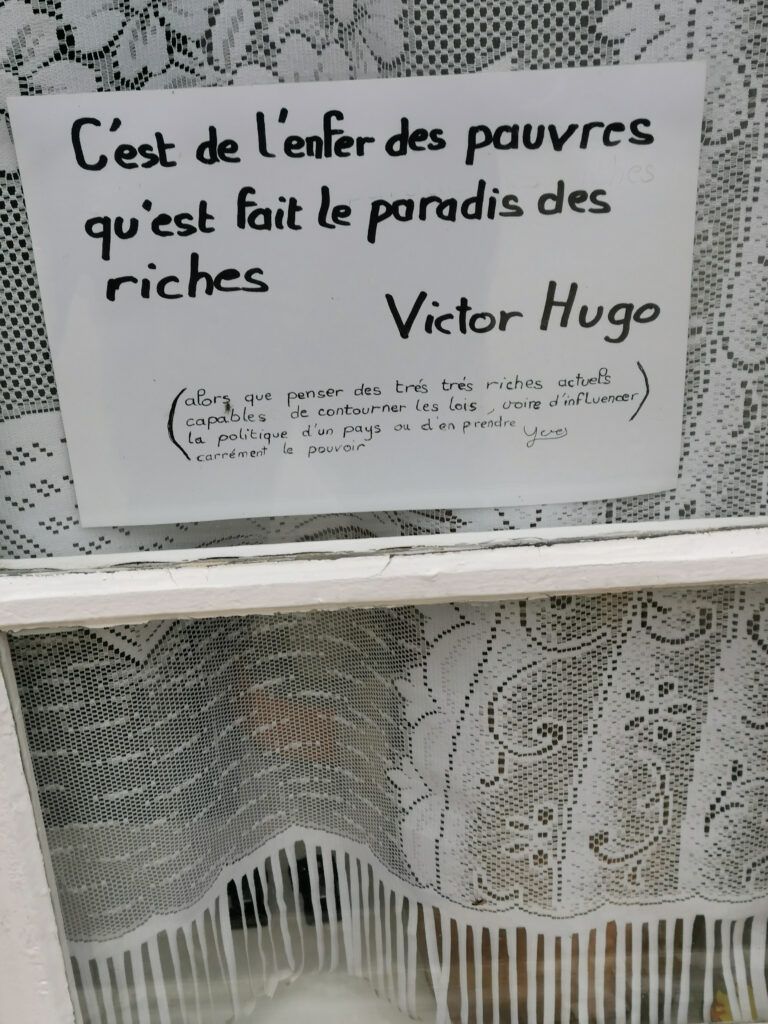 C'est de l'enfer des pauvres
qu'est fait le paradis des
riches
Victor Hugo
(alors que penser des trés trés riches actuels
capables de contourner les lois, voire d'influencer)
la politique d'un pays ou d'en prendre Yves
carrément le pouvoir